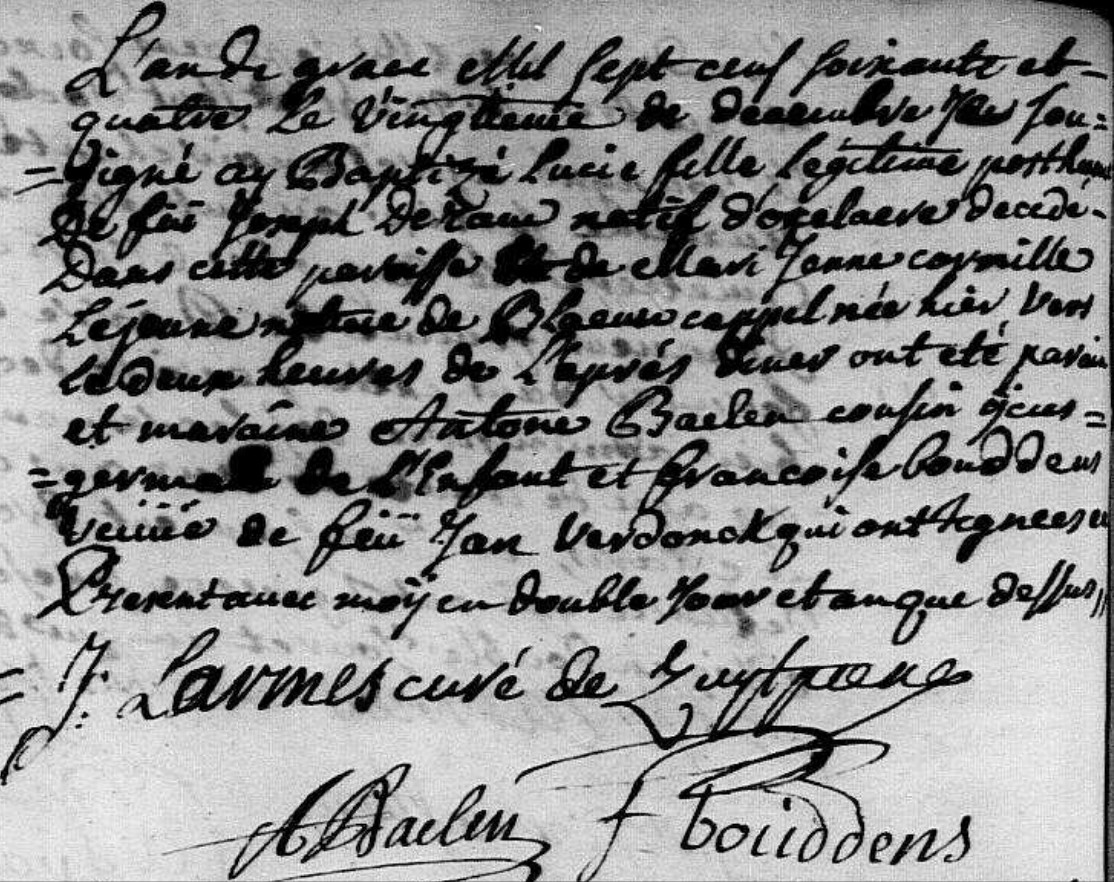 L'an de grace Mil sept cent soixante et
quatre le vingtieme de decembre Je sou=
=signé ay Baptizé Lucie fille légitime posthume
de feü Joseph natif d'oxelaere decedé
Dans cette paroisse de Mari Jenne cormille
Lejeune native de Blaeuw cappel née hiér vers
le deux heures de L'aprés diner ont eté parain
et maraine Antone Baelen cousin
=germain de L'Enfant et francoise bouddens
veüüe de feüi Jan Verdonck qui ont
Present avec moÿ en double Jour et an que dessus
J. Larmes curé de Zuytpene
ABaelen f boüddens